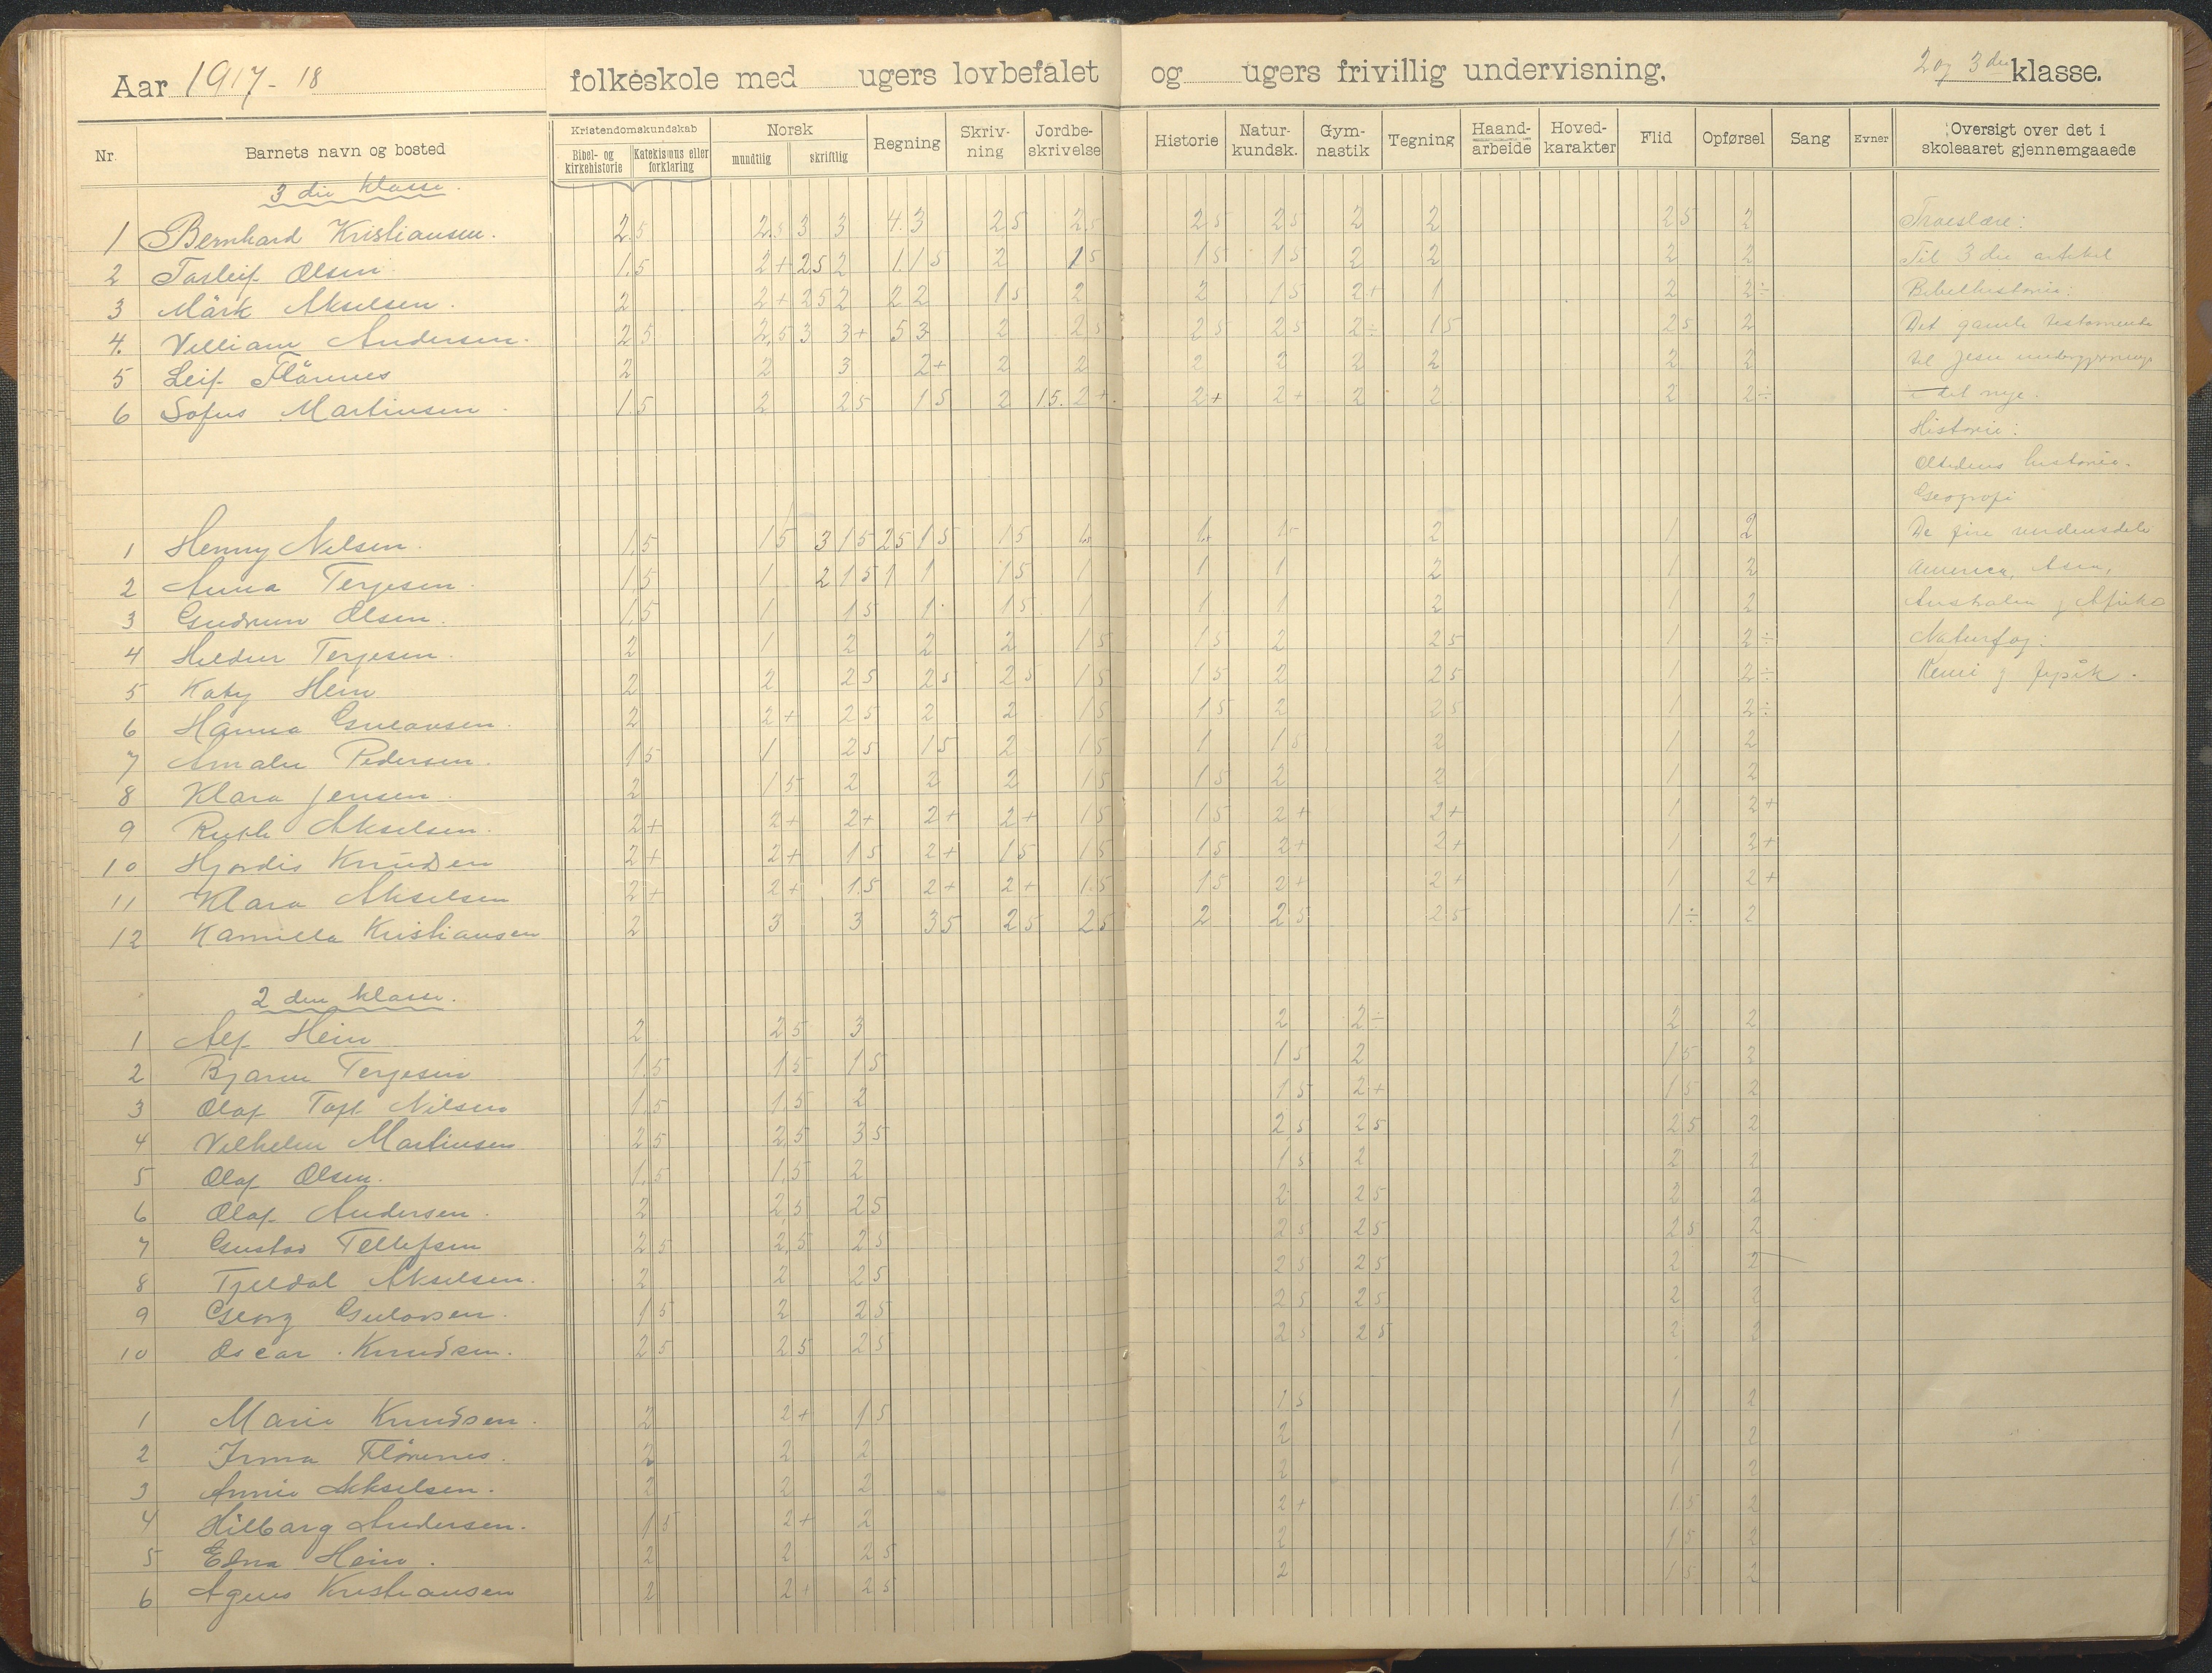 Aar 1917-18 folkeskole med ugers lovbefalet og ugers frivillig undervisning. 2 og 3die klasse.
Nr. Barnets navn og bosted Kristendomskundskab Norsk Regning Skrivning Jordbeskrivelse Historie Naturkundsk. Gymnastik Tegning Haandarbeide Hovedkarakter Flid Opførsel Sang Evner Oversigt over det i skoleaaret gjennemgaaede
Bibel- og kirkehistorie Katekismus eller forklaring mundtlig skriftlig
3 die klasse.
1 Bernhard Kristiansen. 2.5 2.5 3 3 4.3 25 25 25 25 2 2 25 2 Troeslære:
2 Torleif Olsen 1.5 2+ 25 2 1.15 2 15 15 15 2 2 2 2 Til 3 die artikel
3 Mark Akselsen. 2 2+ 25 2 22 15 2 2 15 2+ 1 2 2÷ Bibelhistorie:
4. Villiam Andersen. 25 2,5 3 3+ 53 2 25 25 25 2÷ 15 25 2 Det gamle testamente
5 Leif Flørnes 2 2 3 2+ 2 2 2 2 2 2 2 2 til Jesu undergjerninger
6 Sofus Martinsen. 1.5 2 25 15 2 15. 2+. 2+ 2+ 2 2 2 2÷ i det nye.
Historie:
Oltidens historie.
Geografi
1 Henny Nilsen. 1,5 15 3 15 25 15 15 1 1 15 2 1 2 De fire verdensdele
2 Anna Terjesen. 1,5 1 2 15 1 1 15 1 1 1 2 1 2 America, Asia,
3 Gudrun Olsen. 1,5 1 15 1 15 1 1 1 2 1 2 Australia og Afrika
4 Hildur Terjesen. 2 1 2 2 2 15 15 2 25 1 2÷ Naturfag:
5 Katy Hein 2 2 25 25 25 15 15 2 25 1 2÷ Kemi og fysik.
6 Hanna Gulovsen. 2 2+ 25 2 2 15 15 2 25 1 2÷
7 Amalie Pedersen. 15 1 25 15 2 15 1 15 2 1 2
8 Klara Jensen. 2 15 2 2 2 15 15 2 2 1 2
9 Ruth Akselsen. 2+ 2+ 2+ 2+ 2+ 15 15 2+ 2+ 1 2+
10 Hjordis Knudsen 2+ 2+ 15 2+ 15 15 15 2+ 2+ 1 2+
11 Klara Akselsen 2+ 2+ 1.5 2+ 2+ 1.5 15 2+ 2+ 1 2+
12 Kamilla Kristiansen 2 3 3 35 25 25 2 25 25 1÷ 2
2 den klasse.
1 Alf Hein 2 25 3 2 2÷ 2 2
2 Bjarne Terjesen 1.5 15 15 15 2 15 3
3 Olaf Toft Nilsen 1.5 1,5 2 15 2+ 15 2
4 Vilhelm Martinsen 25 25 35 25 25 25 2
5 Olaf Olsen. 1.5 1,5 2 15 2 2 2
6 Olaf Andersen. 2 25 25 2 25 2 2
7 Gustav Tellefsen 25 2,5 25 25 25 25 2
8 Tjeldal Akselsen. 2 2 25 25 25 2 2
9 Georg Gulovsen. 15 2 25 25 25 2 2
10 Oscar Knudsen. 25 25 25 25 25 2 2
1 Marie Knudsen. 2 2+ 15 15 1 2
2 Irma Flørenes. 2 2 2 2 1 2
3 Annie Akselsen. 2 2 2 2 1 2
4 Hilborg Andersen. 15 2+ 2 2+ 1.5 2
5 Edna Hein. 2 2 25 2 15 2
6 Agnes Kristiansen 2 2+ 25 2 15 2